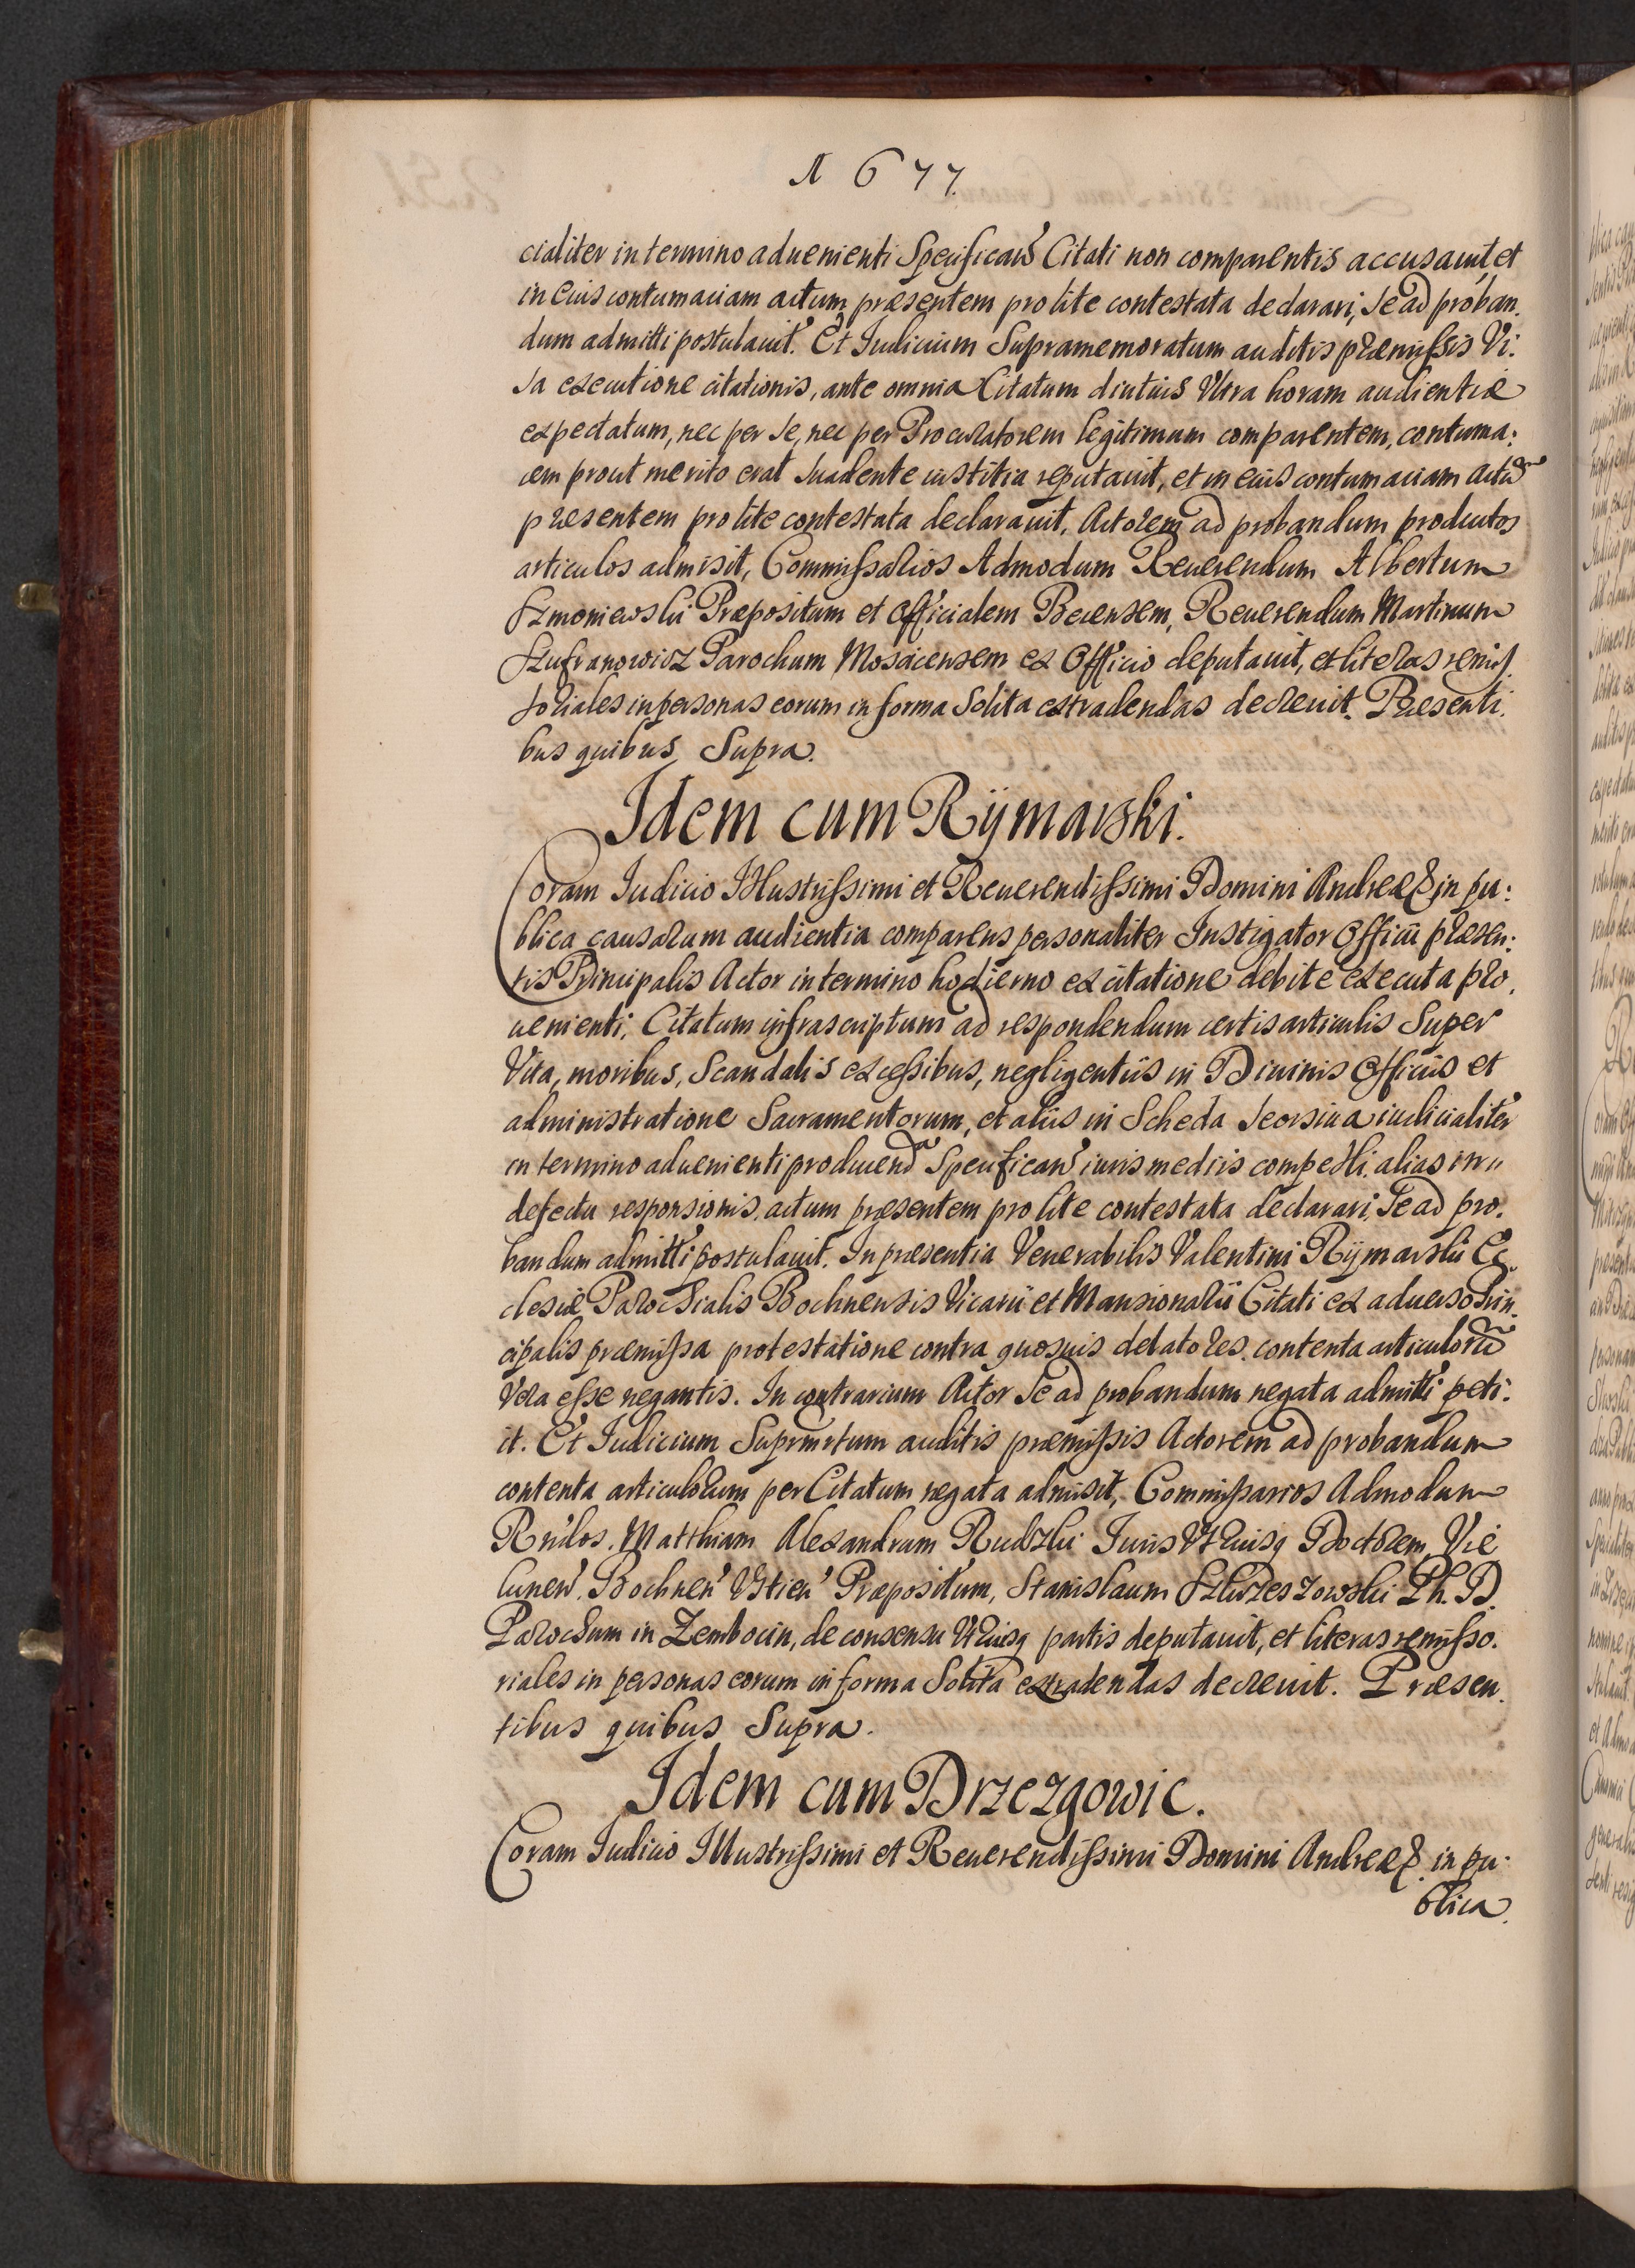 A 677.
cialiter in termino aduenienti Specifican Citati non comparentis accusauit, et
in eius contumaciam actum præsentem pro lite contestata declarari, se ad proban.
dum admitti postulauit. Et Iudicium Supramemoratum auditis præmissis Vi.
sa executione citationis, ante omnia Citatum diutius Vltra horam audientiæ
expectatum, nec per se, nec per Procuratorem legitimum comparentem, contuma:
cem prout merito erat suadente iustitia reputauit, et in eius contumaciam actum
præsentem pro lite contestata declarauit, Actorem ad probandum productos
articulos admisit, Commissarios Admodum Reuerendum Albertum
Szmoniewski Præpositum et Officialem Becensem, Reuerendum Martinum
Szufranowicz Parochum Moscicensem ex Officio deputauit, et literas remis
soriales in personas eorum in forma Solita extradendas decreuit. Præsenti.
bus quibus Supra.
Idem cum Rÿmawski.
Coram Iudicio Illustrissimi et Reuerendissimi Domini Andreæ & in pu:
blica causarum audientia comparens personaliter Instigator Officii præsen:
tis Principalis Actor in termino hodierno ex citatione debite executa pro.
uenienti, Citatum infrascriptum ad respondendum certis articulis Super
Vita, moribus, Scandalis excessibus, negligentiis in Diuinis Officiis et
administratione Sacramentorum, et aliis in Scheda seorsiua iudicialiter
in termino aduenienti producenda Specifican iuris mediis compelli. alias in
defectu responsionis, actum præsentem pro lite contestata declarari, Se ad pro.
bandum admitti postulauit. In præsentia Venerabilis Valentini Rÿmawski Ec
clesiæ Parochialis Bochnensis Vicarii et Mansionarii Citati ex aduerso Prin.
cipalis præmissa protestatione contra quosuis delatores. contenta articulorum
Vera esse negantis. In contrarium Actor Se ad probandum negata admitti peti.
it. Et Iudicium Suprmrtum auditis præmissis Actorem ad probandum
contenta articulorum per Citatum negata admisit, Commissarios Admodum
Rndos. Matthiam Alexandrum Rudzki Iuris Vtriusq Doctorem, Vie
lunen. Bochnen Vstien Præpositum, Stanislaum Szkrzeszowski Ph. D.
Parochum in Zembocin, de consensu Vtriusq partis deputauit, et literas remisso.
riales in personas eorum in forma Solita extradendas decreuit. Præsen.
tibus quibus Supra.
Idem cum Drzezgowic.
Coram Iudicio Illustrissimi et Reuerendissimi Domini Andreæ &. in pu.
blica.